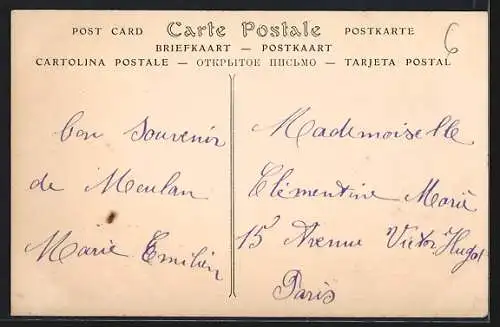 POST CARD Carte Postale POSTKARTE
BRIEFKAART — POSTKAART
CARTOLINA POSTALE — ОТКРЫТОЕ ПИСЬМО — TARJETA POSTAL
6
bon souvenir
de Meulan
Marie Emilien
Mademoiselle
Clémentine Marié
15 Avenue Victor Hugo
Paris